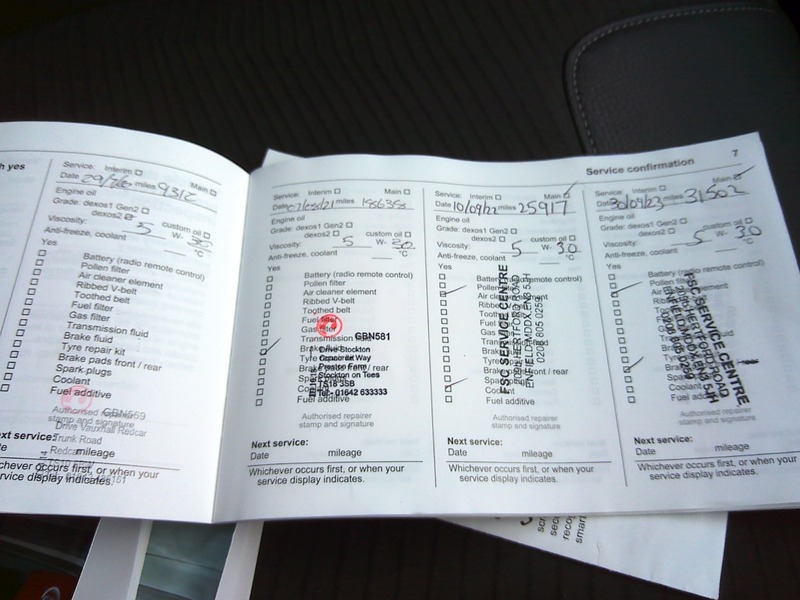 h yes
Service: Interim Main
Date miles 9312
Engine oil
Grade: dexos1 Gen2
dexos2 custom oil
Viscosity: 5 W- 30
Anti-freeze, coolant °C
Yes
Battery (radio remote control)
Pollen filter
Air cleaner element
Ribbed V-belt
Toothed belt
Fuel filter
Gas filter
Transmission fluid
Brake fluid
Tyre repair kit
Brake pads front / rear
Spark plugs
Coolant
Fuel additive
GBN569
Authorised repairer
stamp and signature
Drive Vauxhall Redcar
Trunk Road
Redcar
Next service:
Date mileage
Whichever occurs first, or when your
service display indicates.
Service confirmation 7
Service: Interim Main
Date miles
Engine oil
Grade: dexos1 Gen2
dexos2 custom oil
Viscosity: 5 W- 30
Anti-freeze, coolant °C
Yes
Battery (radio remote control)
Pollen filter
Air cleaner element
Ribbed V-belt
Toothed belt
Fuel filter
Gas filter
Transmission fluid
Brake fluid
Tyre
Brake pads front / rear
Spark
Coolant
Fuel additive
GBN581
Drive Stockton
Way
Preston Farm
Stockton on Tees
TS18 3SB
Tel:- 01642 633333
Authorised repairer
stamp and signature
Next service:
Date mileage
Whichever occurs first, or when your
service display indicates.
Service: Interim Main
Date 10/09/22 miles 25917
Engine oil
Grade: dexos1 Gen2
dexos2 custom oil
Viscosity: 5 W- 30
Anti-freeze, coolant °C
Yes
Battery (radio remote control)
Pollen filter
Air cleaner element
Ribbed V-belt
Toothed belt
Fuel
Gas
Brake
Tyre
Brake
Spark
Coolant
Fuel additive
FSC SERVICE CENTRE
HERTFORD ROAD
ENFIELD MDDX EN3 5JH
0208 805 0259
Authorised repairer
stamp and signature
Next service:
Date mileage
Whichever occurs first, or when your
service display indicates.
Service: Interim Main
Date 30/09/23 miles 31502
Engine oil
Grade: dexos1 Gen2
dexos2 custom oil
Viscosity: 5 W- 30
Anti-freeze, coolant °C
Yes
Battery (radio remote control)
Pollen filter
Air cleaner element
Ribbed V-belt
Toothed belt
Fuel
Gas
Brake
Tyre
Brake
Spark
Coolant
Fuel additive
FSC SERVICE CENTRE
HERTFORD ROAD
Authorised repairer
stamp and signature
Next service:
Date mileage
Whichever occurs first, or when your
service display indicates.